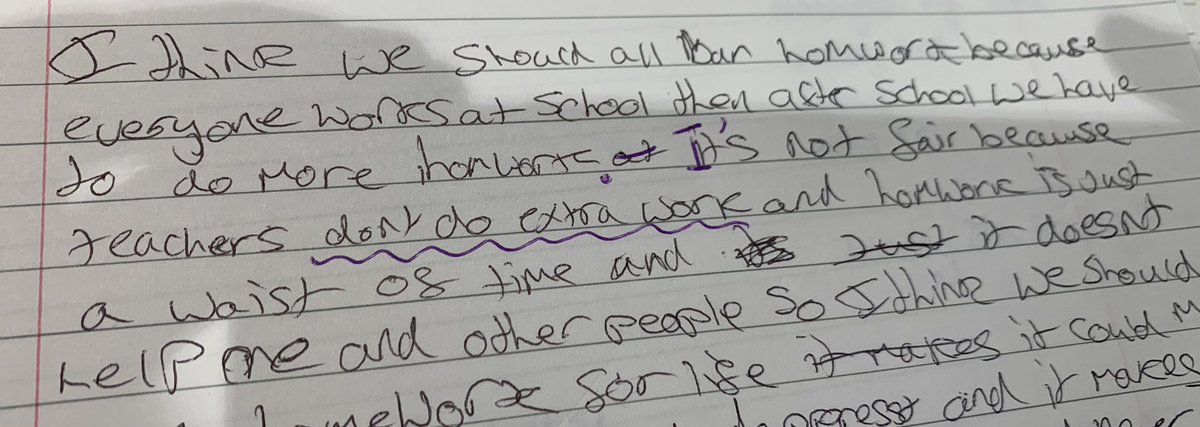 I think we should all ban homwork because
everyone works at school then after school we have
to do more homwork. at It's not fair because
teachers dont do extra work and homwork is just
a waist of time and just it doesnt
help me and other people so I think we should
homework for life it makes it could
and it makes